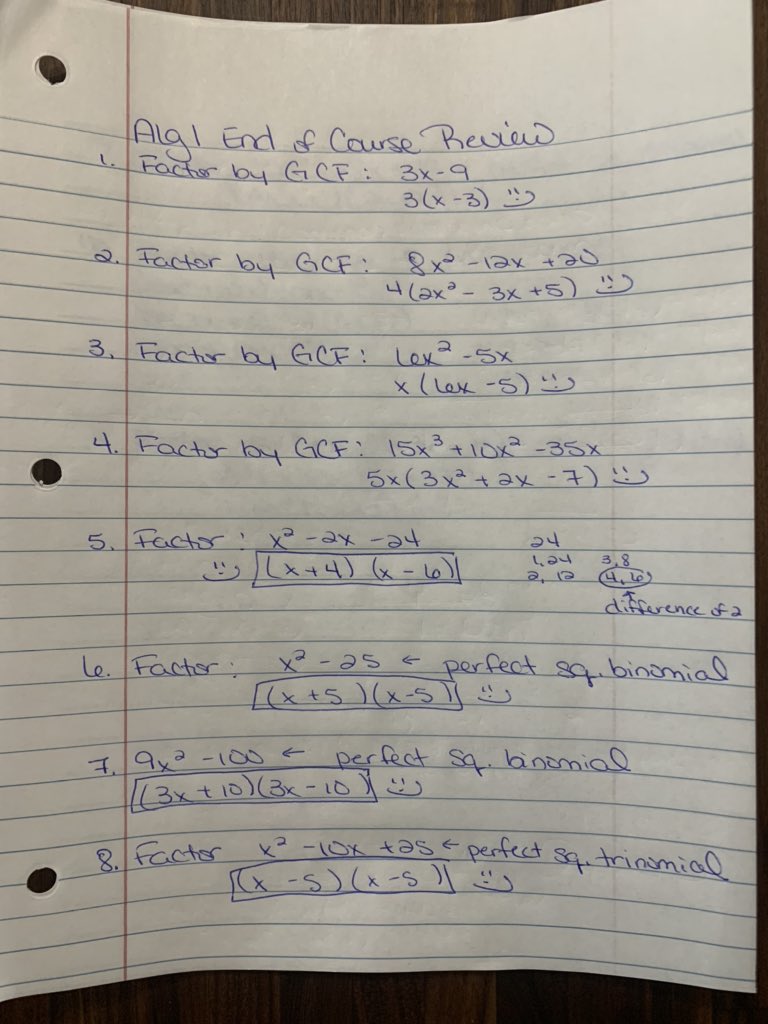 Alg 1 End of Course Review
1. Factor by GCF: 3x-9
3(x-3) :)
2. Factor by GCF: 8x² -12x +20
4(2x² - 3x +5) :)
3. Factor by GCF: 6x² -5x
x(6x -5) :)
4. Factor by GCF: 15x³ +10x² -35x
5x(3x² + 2x - 7) :)
5. Factor: x² -2x -24 24
:) (x+4) (x-6) 1,24 3,8
2,12 4,6
↑
difference of 2
6. Factor: x² - 25 ← perfect sq. binomial
(x+5)(x-5) :)
7. 9x² -100 ← perfect sq. binomial
(3x+10)(3x-10) :)
8. Factor x² -10x +25 ← perfect sq. trinomial
(x -5)(x-5) :)